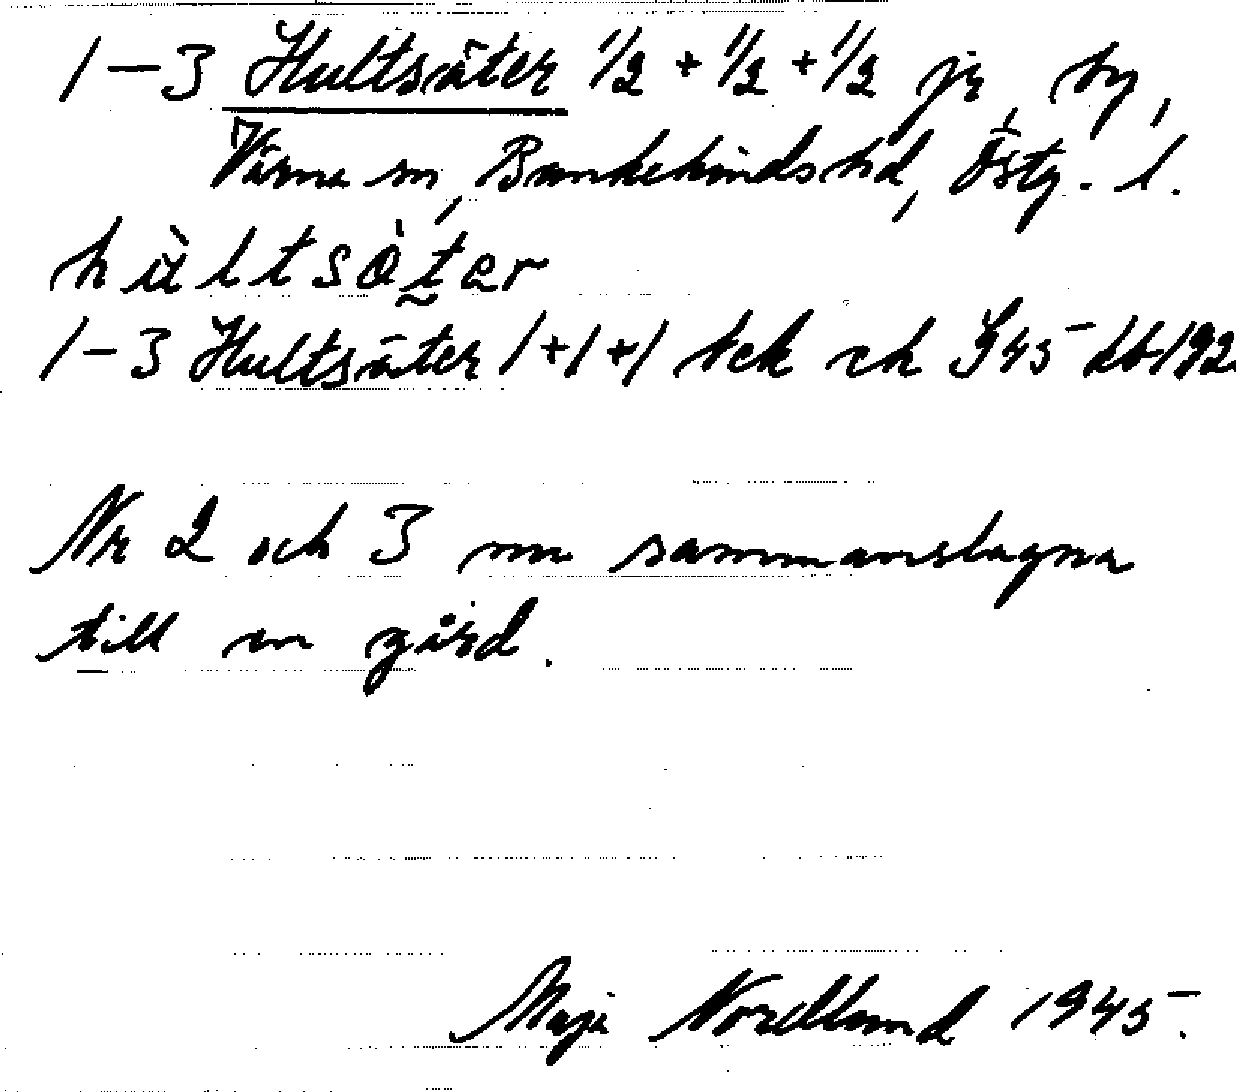 1–3 Hultsäter 1/2 + 1/2 + 1/2 jr, by,
Värna sn, Bankekinds hd, Östg. l.
hùltsàt̰er
1–3 Hultsäter 1+1+1 tck rh J45 db 192
Nr 2 och 3 nu sammanslagna
till en gård.
Maja Nordlund 1945.